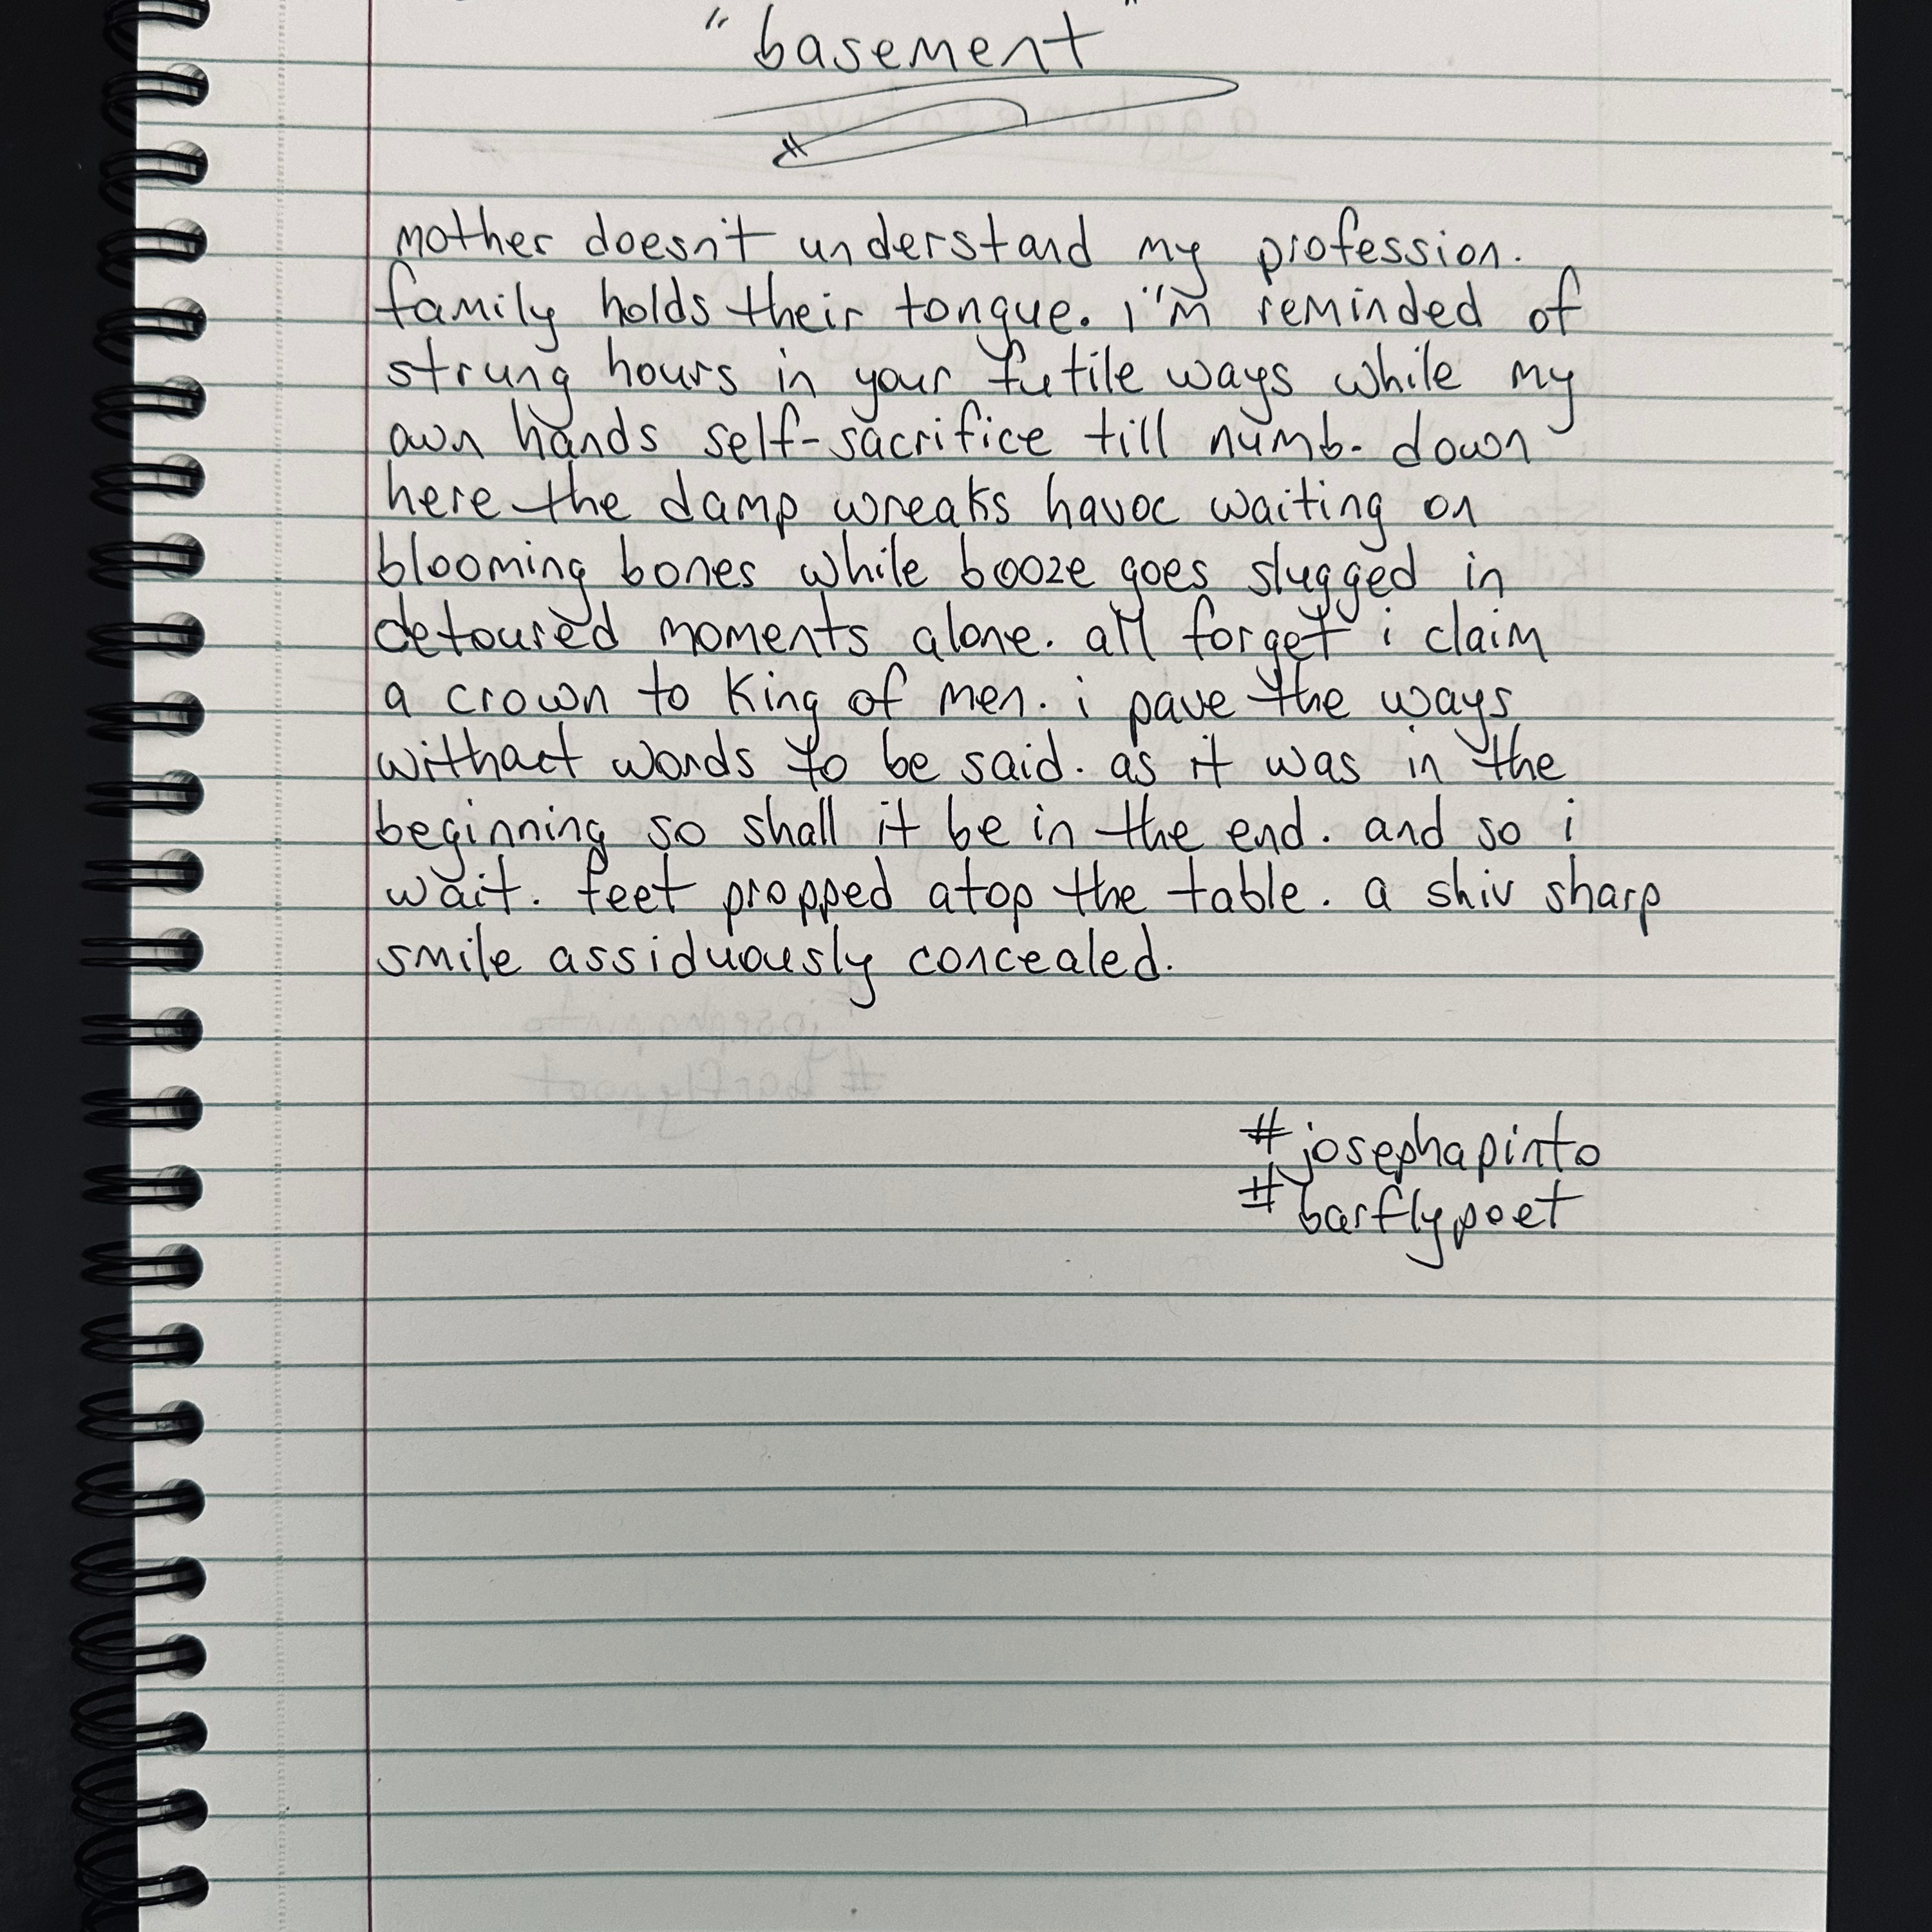 "basement"
mother doesn't understand my profession.
family holds their tongue. i'm reminded of
strung hours in your futile ways while my
own hands self-sacrifice till numb. down
here the damp wreaks havoc waiting on
blooming bones while booze goes slugged in
detoured moments alone. all forget i claim
a crown to king of men. i pave the ways
without words to be said. as it was in the
beginning so shall it be in the end. and so i
wait. feet propped atop the table. a shiv sharp
smile assiduously concealed.
#josephapinto
#barflypoet